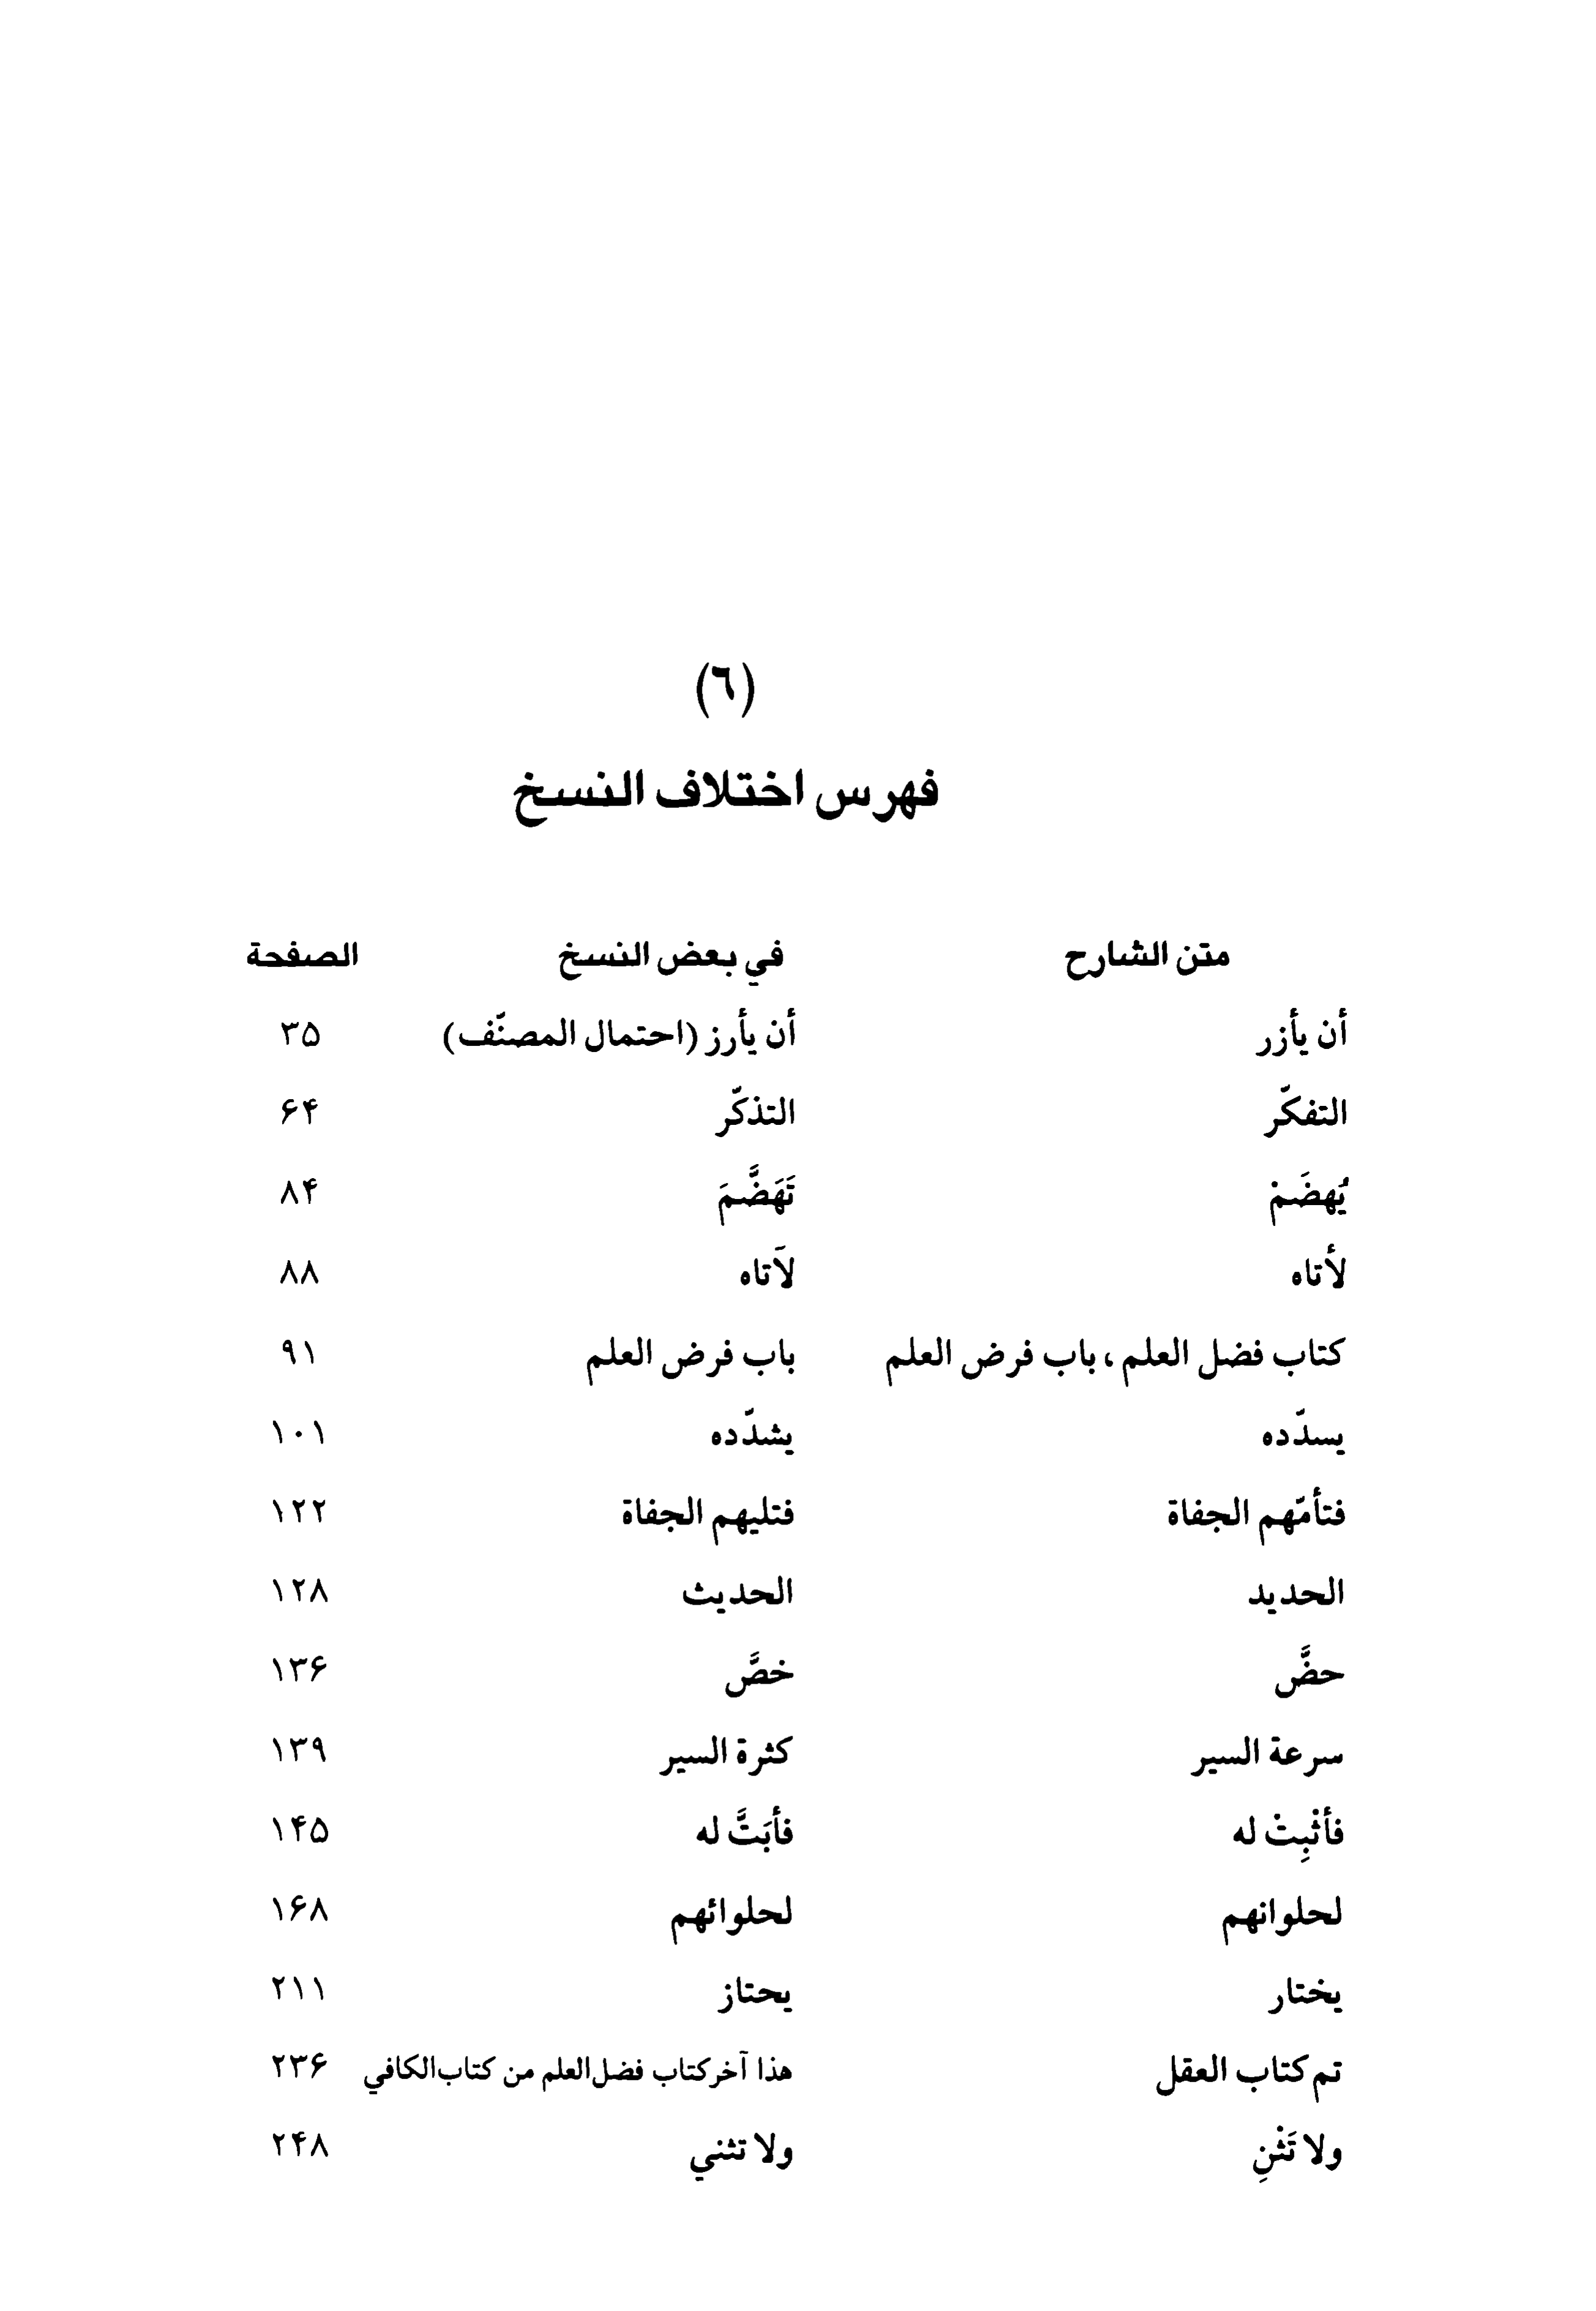 (٦)
فهرس اختلاف النسخ
متن الشارح في بعض النسخ الصفحة
أن يأزر أن يأرز (احتمال المصنّف) ۳۵
التفكّر التذكّر ۶۴
يُهضَمْ تَهَضَّمَ ۸۴
لأتاه لآتاه ۸۸
كتاب فضل العلم، باب فرض العلم باب فرض العلم ۹۱
يسدّده يشدّده ۱۰۱
فتأمّهم الجفاة فتليهم الجفاة ۱۲۲
الحديد الحديث ۱۲۸
حضَّ خصَّ ۱۳۶
سرعة السير كثرة السير ۱۳۹
فأثْبِتْ له فأبَتَّ له ۱۴۵
لحلوانهم لحلوائهم ۱۶۸
يختار يحتاز ۲۱۱
تم كتاب العقل هذا آخر كتاب فضل العلم من كتاب الكافي ۲۳۶
ولا تَثْنِ ولا تثني ۲۴۸